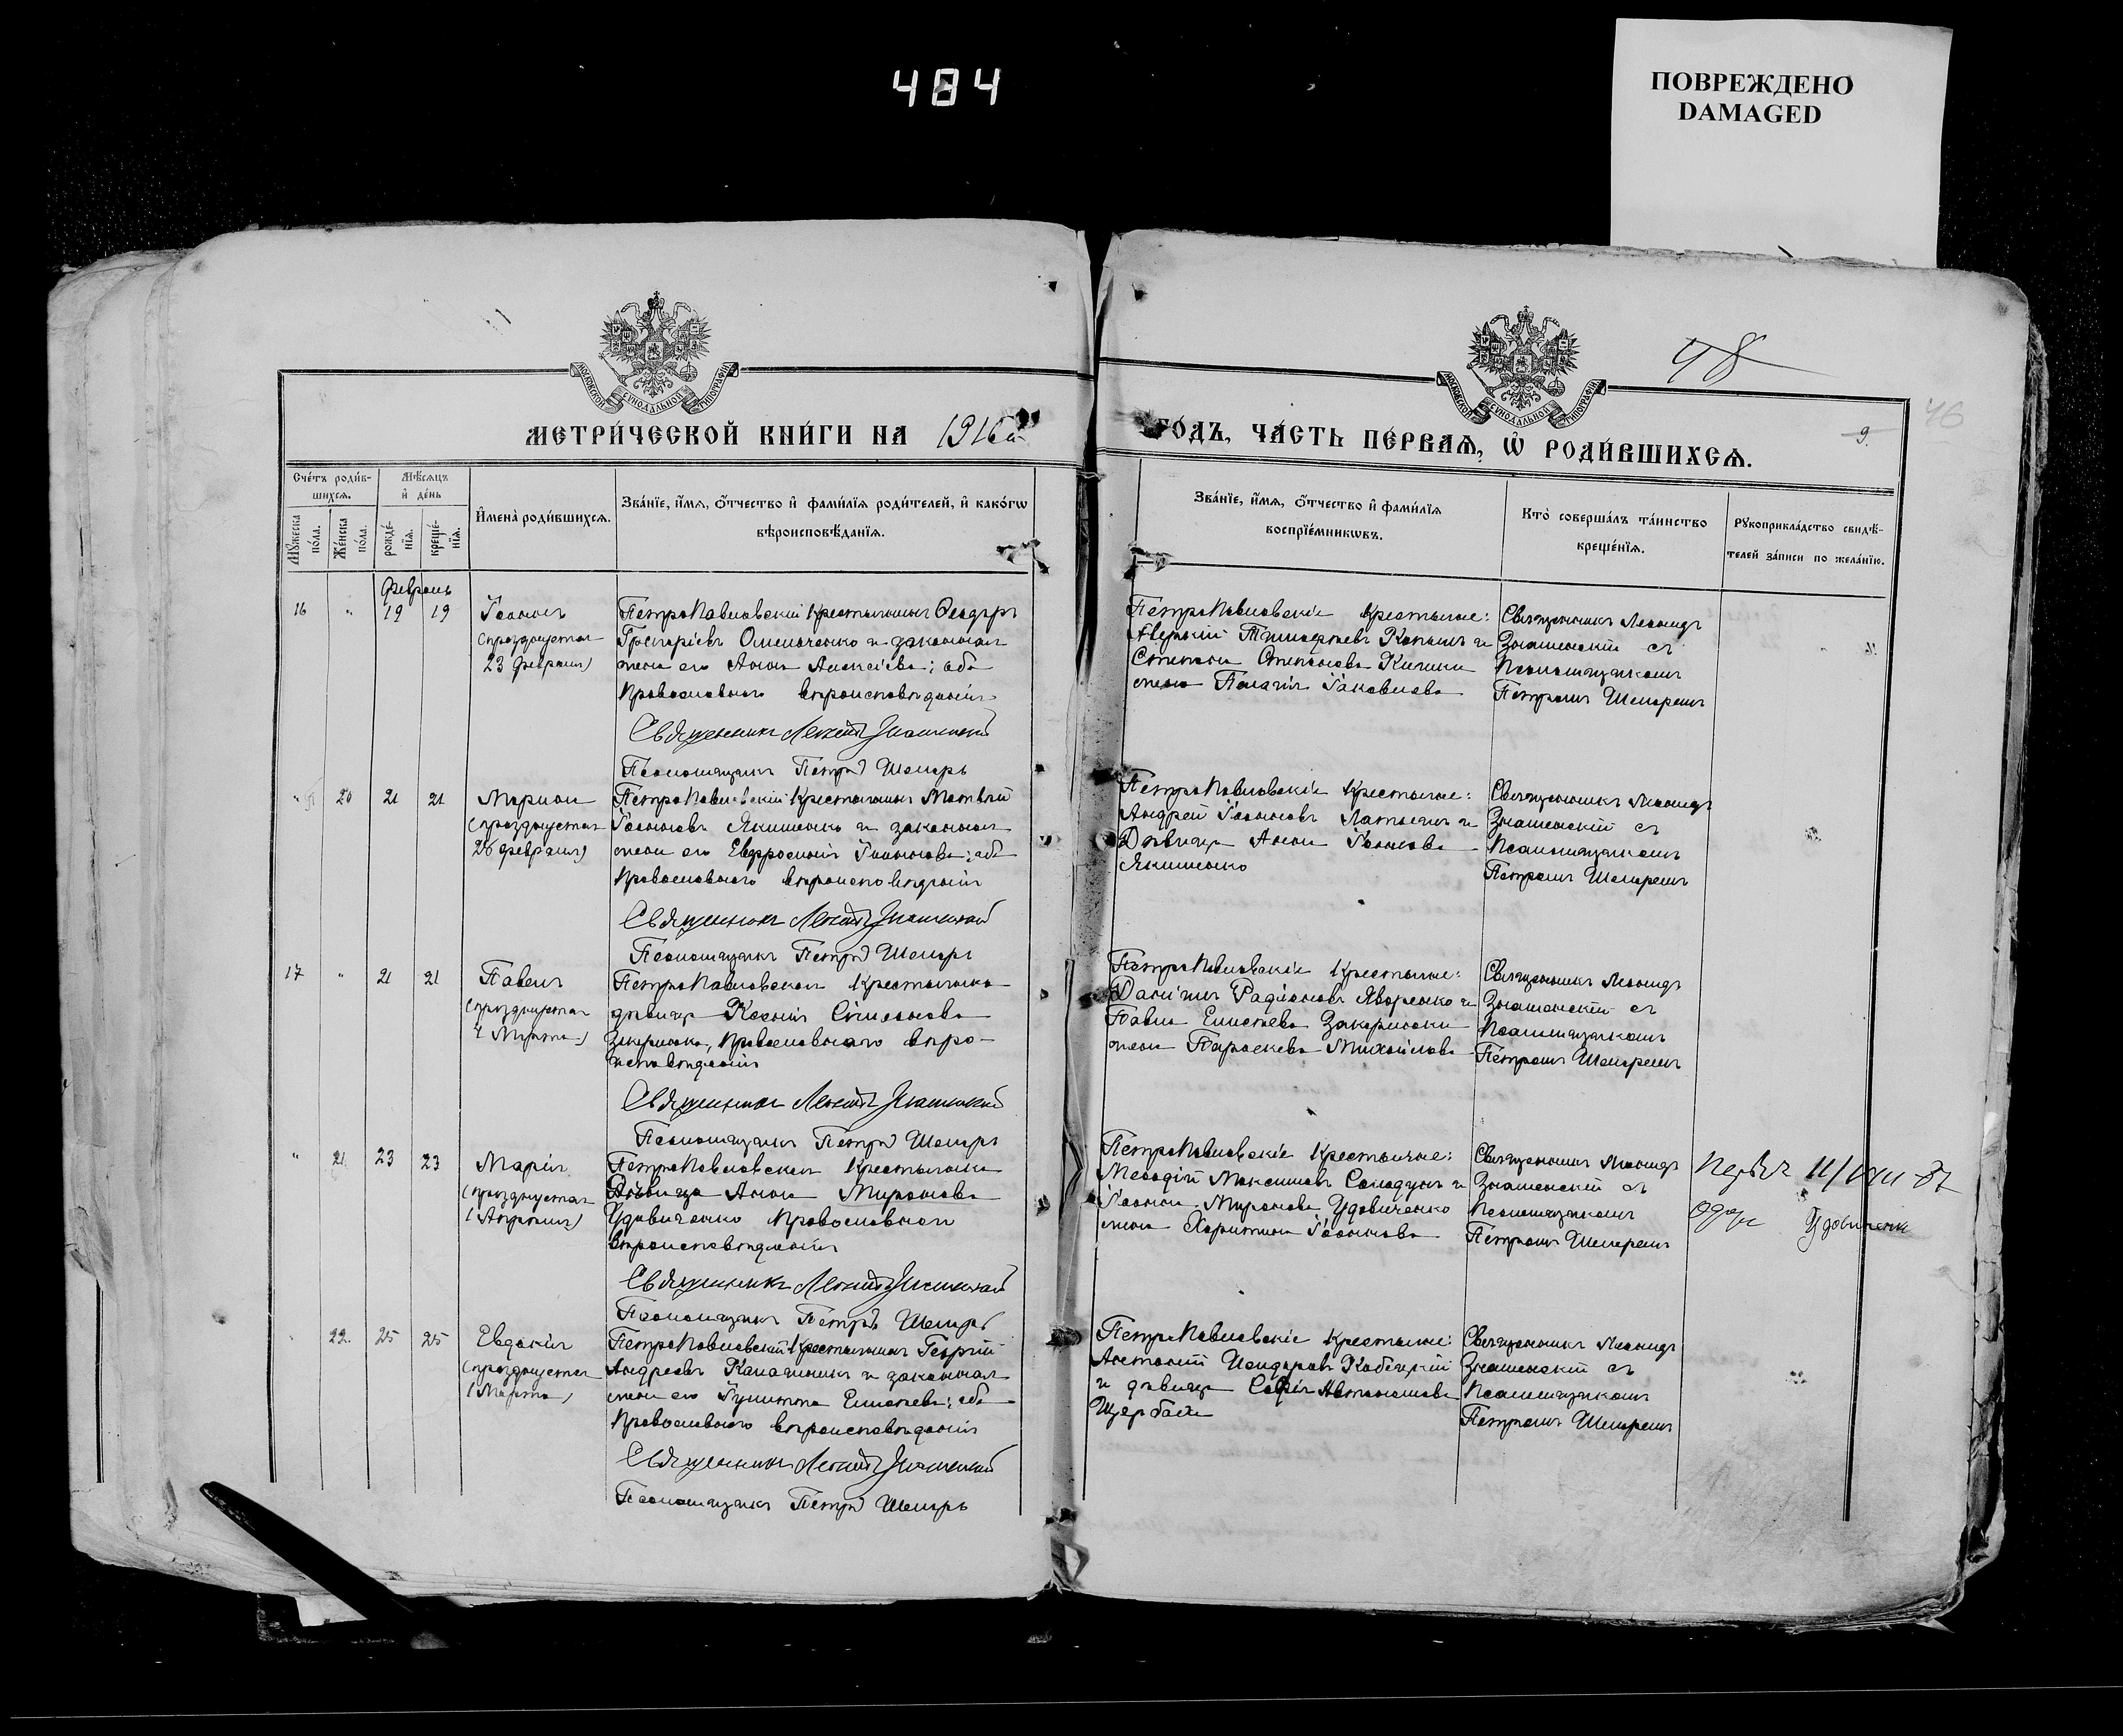 484
ПОВРЕЖДЕНО
DAMAGED
48
46
9.
МОСКОВСКОЙ СѴНОДАЛЬНОЙ ТИПОГРАФІИ
МОСКОВСКОЙ СѴНОДАЛЬНОЙ ТИПОГРАФІИ
МЕТРИ́ЧЕСКОЙ КНИ́ГИ НА 1916й
ГОДЪ, ЧА́СТЬ ПЕ́РВАЯ, Ѡ҆ РОДИ́ВШИХСЯ.
Сче́тъ роди́в-
шихсѧ.
Мꙋ́жеска
по́ла.
Же́нска
по́ла.
Мѣ́сѧцъ
и҆ де́нь
рожде́-
нїѧ.
креще́-
нїѧ.
И҆мена̀ роди́вшихсѧ.
Зва́нїе, и҆́мѧ, ѻ҆́тчество и҆ фами́лїѧ роди́телей, и҆ како́гѡ
вѣроисповѣ́данїѧ.
Зва́нїе, и҆́мѧ, ѻ҆́тчество и҆ фами́лїѧ
воспрїе́мникѡвъ.
Кто̀ соверша́лъ та́инство
креще́нїѧ.
Рꙋкоприкла́дство свидѣ́-
телей за́писи по жела́нїю.
Февраль
16 " 19 19
Іоаннъ
(празднуется
23 февраля)
ПетроПавловскій крестьянинъ Ѳеодоръ
Григоріевъ Омельченко и законная
жена его Анна Алексіева; оба
Православнаго вѣроисповѣданія
Священникъ Леонидъ Знаменскій
Псаломщикъ Петръ Шемаръ
ПетроПавловскіе крестьяне:
Аверкій Тимофеевъ и
Степана Степанова
жена Пелагія Іаковлева
Священникъ Леонидъ
Знаменскій съ
Псаломщикомъ
Петромъ Шемаремъ
" 20 21 21
Марина
(празднуется
28 февраля)
ПетроПавловскій крестьянинъ Матвѣй
Іоанновъ Якименко и законная
жена его Евфросинія Іоаннова; оба
Православнаго вѣроисповѣданія
Священникъ Леонидъ Знаменскій
Псаломщикъ Петръ Шемаръ
ПетроПавловскіе крестьяне:
Андрей Іоанновъ и
Дѣвица Анна Іоаннова
Якименко
Священникъ Леонидъ
Знаменскій съ
Псаломщикомъ
Петромъ Шемаремъ
17 " 21 21
Павелъ
(празднуется
4 Марта)
ПетроПавловская крестьянка
дѣвица Ксенія
Православнаго вѣро-
исповѣданія
Священникъ Леонидъ Знаменскій
Псаломщикъ Петръ Шемаръ
ПетроПавловскіе крестьяне:
Даніилъ Радіоновъ Яворенко и
Павла Елисеева
жена Параскева Михайлова
Священникъ Леонидъ
Знаменскій съ
Псаломщикомъ
Петромъ Шемаремъ
" 21 23 23
Марія
(празднуется
1 Апрѣля)
ПетроПавловская крестьянка
Дѣвица Анна Миронова
Удовиченко Православнаго
вѣроисповѣданія
Священникъ Леонидъ Знаменскій
Псаломщикъ Петръ Шемаръ
ПетроПавловскіе крестьяне:
Меѳодій Максимовъ Солодунъ и
Іоанна Миронова Удовиченко
жена Харитина Іоаннова
Священникъ Леонидъ
Знаменскій съ
Псаломщикомъ
Петромъ Шемаремъ
Удовиченк
" 22 25 25
Евдокія
(празднуется
1 Марта)
ПетроПавловскій крестьянинъ Георгій
Андреевъ Калашникъ и законная
жена его Іулитта Елисеева; оба
Православнаго вѣроисповѣданія
Священникъ Леонидъ Знаменскій
Псаломщикъ Петръ Шемаръ
ПетроПавловскіе крестьяне:
Антоній
и дѣвица Софія
Щербака
Священникъ Леонидъ
Знаменскій съ
Псаломщикомъ
Петромъ Шемаремъ